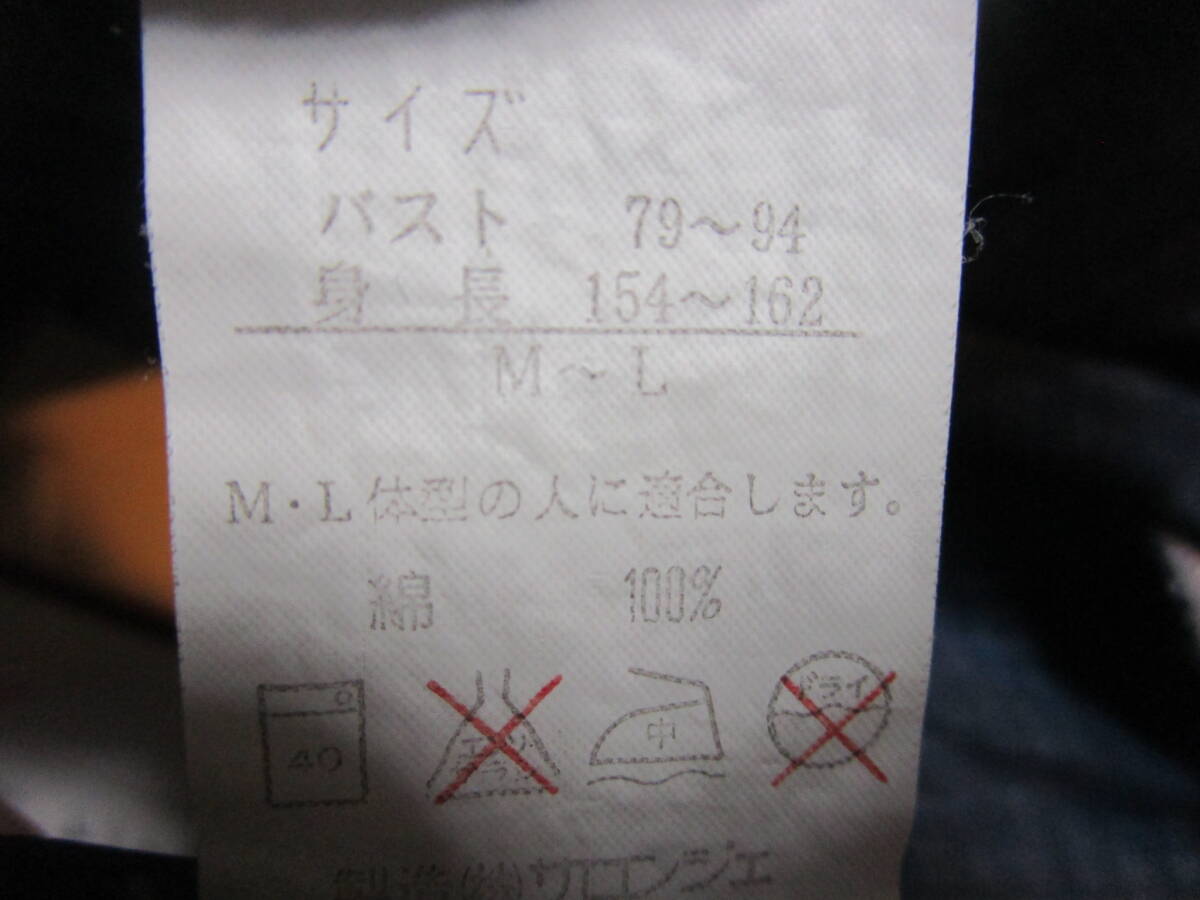 サイズ
バスト 79～94
身 長 154～162
M～L
M・L体型の人に適合します。
綿 100%
40 エンソ サラシ 中 ドライ
製造(株)サロンジェ